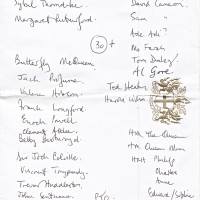 Sybil Thorndike.
Margaret Rutherford.
30 +
Butterfly McQueen
Jack Profumo.
Valerie Hobson.
Frank Longford.
Enoch Powell
Clement Attlee.
Betty Boothroyd
Sir Jock Colville.
Vincent
Trevor Huddleston,
John
PTO.
David Cameron.
Sam "
Ade Adi?
Mo Farah
Tom Daley?
Al Gore
Ted Heath
Harold Wilson
HM The Queen
HM Queen Mum
HRH Philip
Charles
Anne
Edward/Sophie